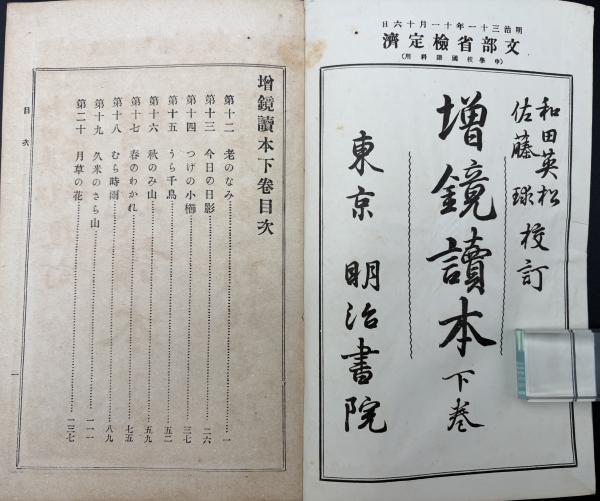 明治三十一年十一月十六日
文部省檢定濟
(中學校國語科用)
和田英松
佐藤球
校訂
增鏡讀本下卷
東京 明治書院
增鏡讀本下卷目次
第十二 老のなみ…………一
第十三 今日の日影…………二六
第十四 つげの小櫛…………三七
第十五 うら千鳥…………五二
第十六 秋のみ山…………五九
第十七 春のわかれ…………七五
第十八 むら時雨…………八九
第十九 久米のさら山…………一一一
第二十 月草の花…………一三七
目次
一